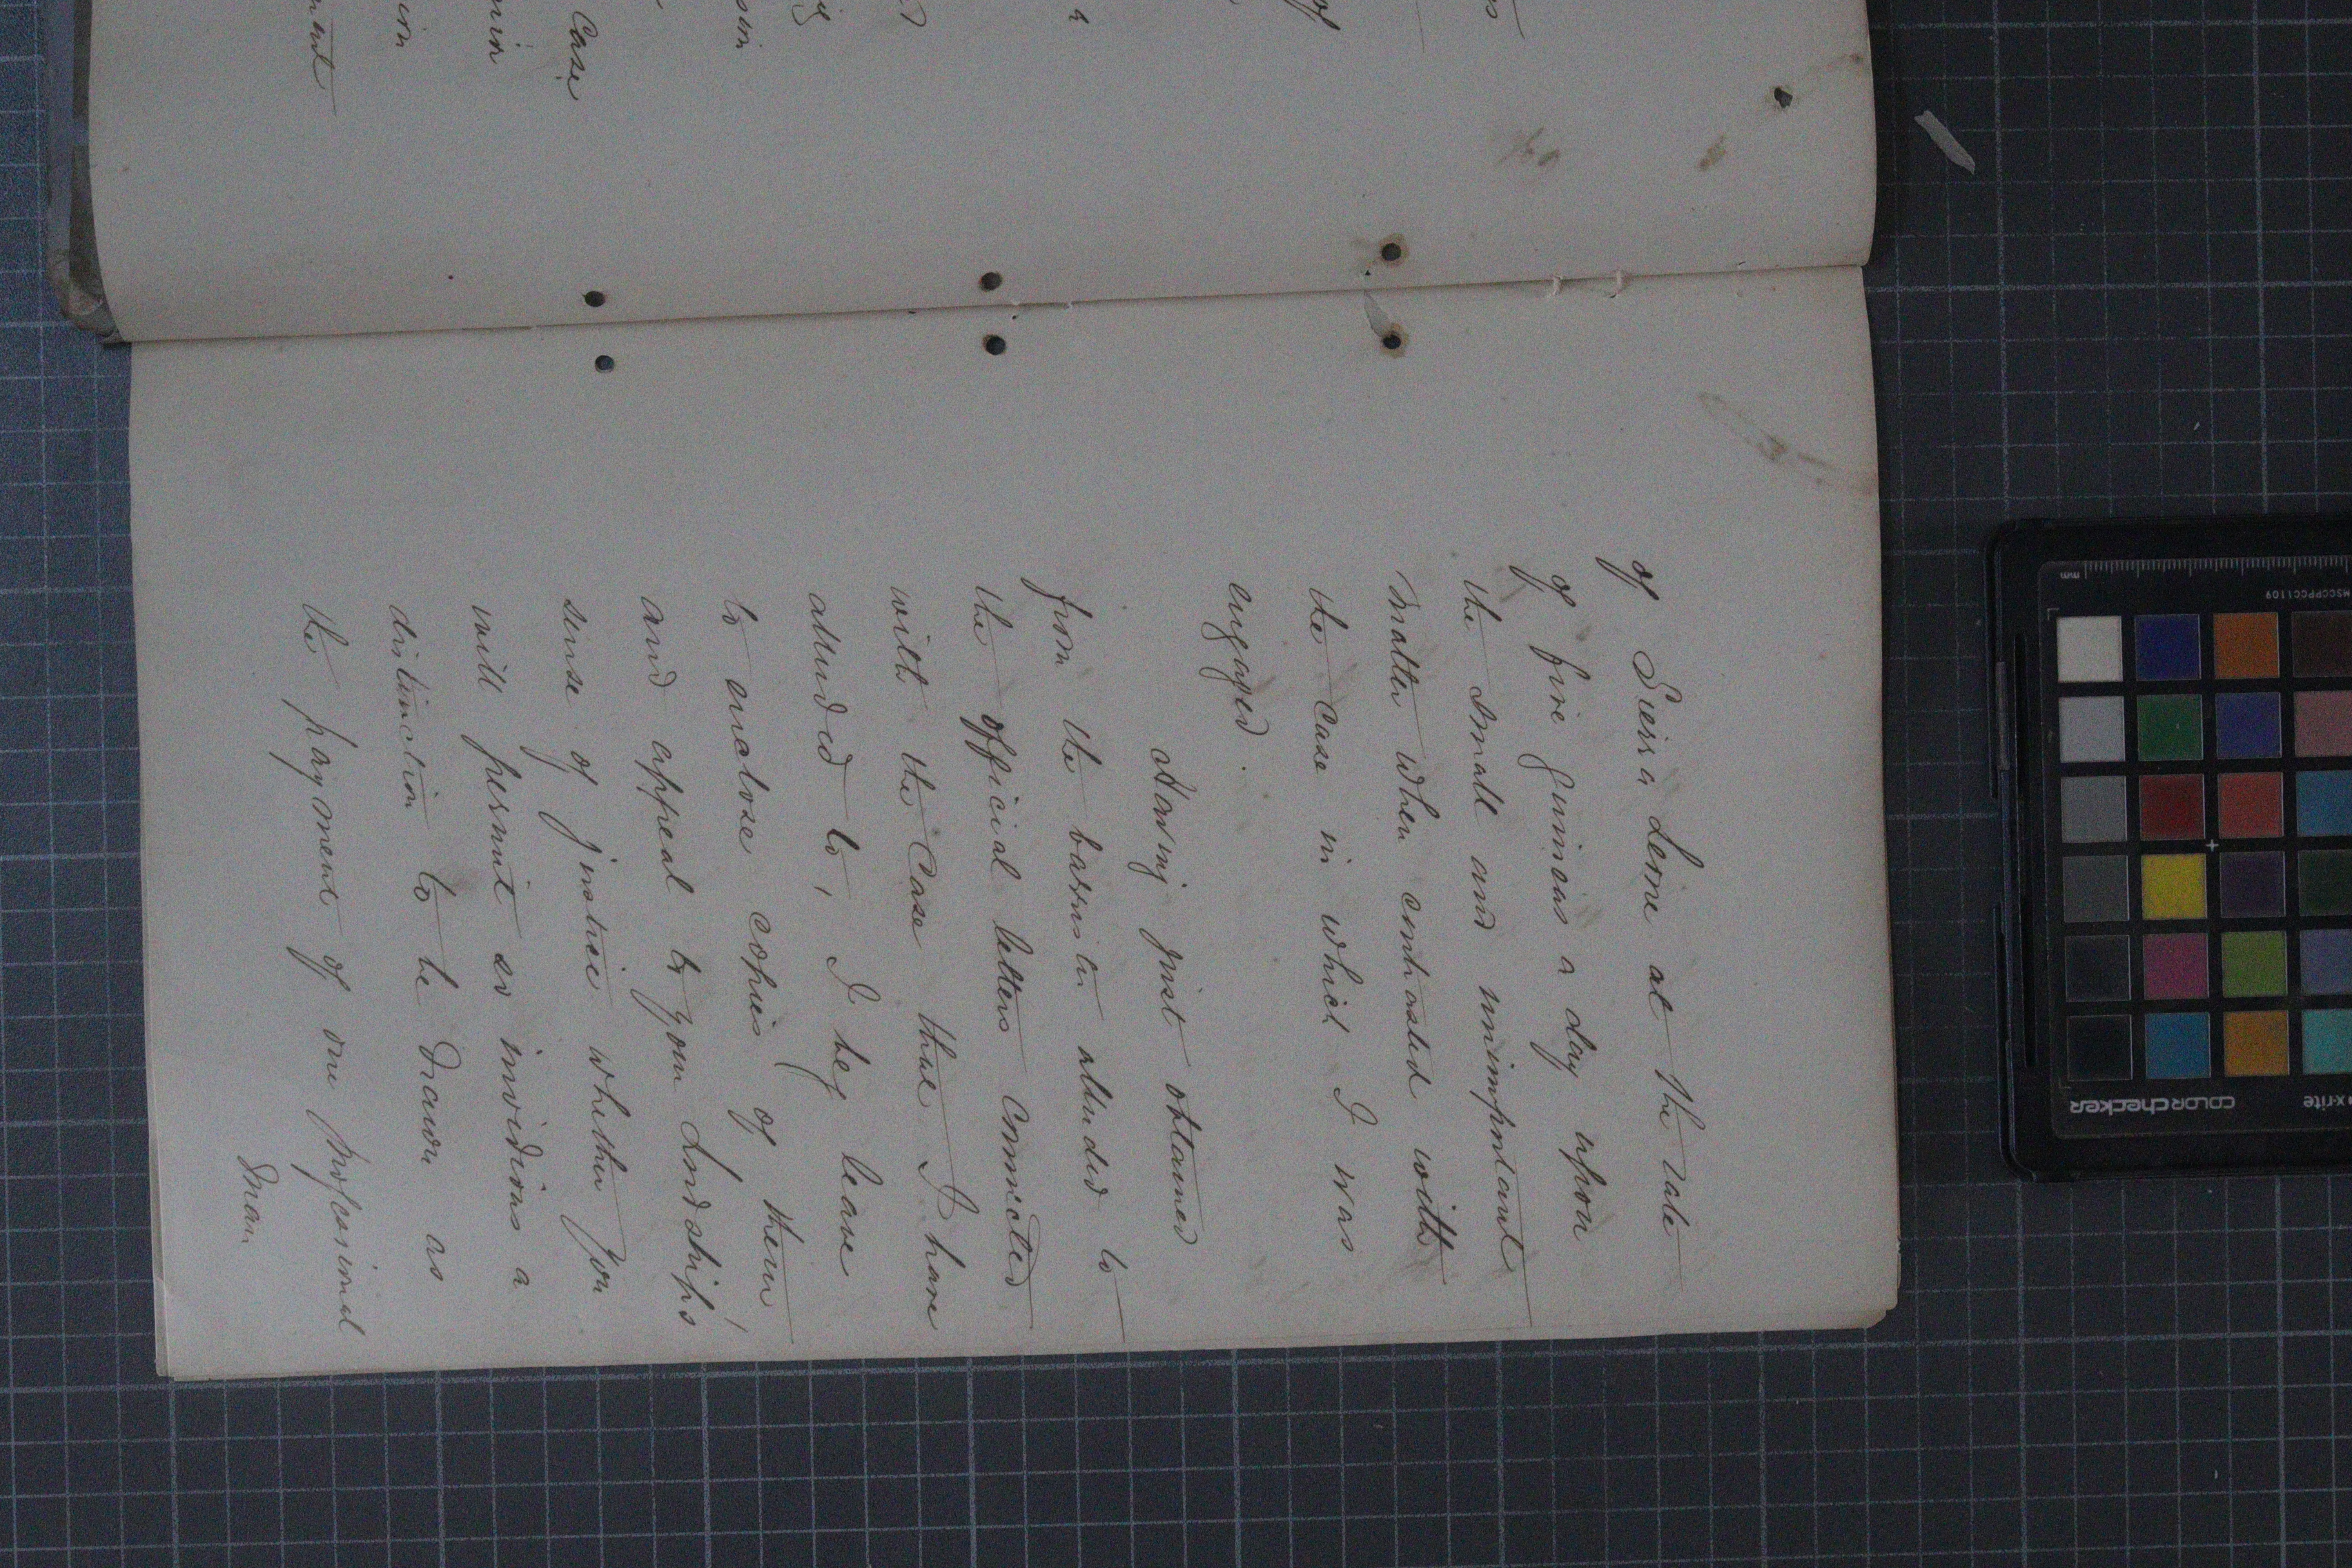 of Sierra Leone at the rate
of five guineas a day upon
the small and unimportant
matter when contrasted with
the case in which I was
engaged.
Having just obtained
from the barrister alluded to
the official letters connected
with the Case that I have
allud ed to, I beg leave
to enclose copies of them
and appeal to your Lordships'
sense of justice whether you
will permit so invidious a
distinction to be drawn as
the payment of one professional
man
Case